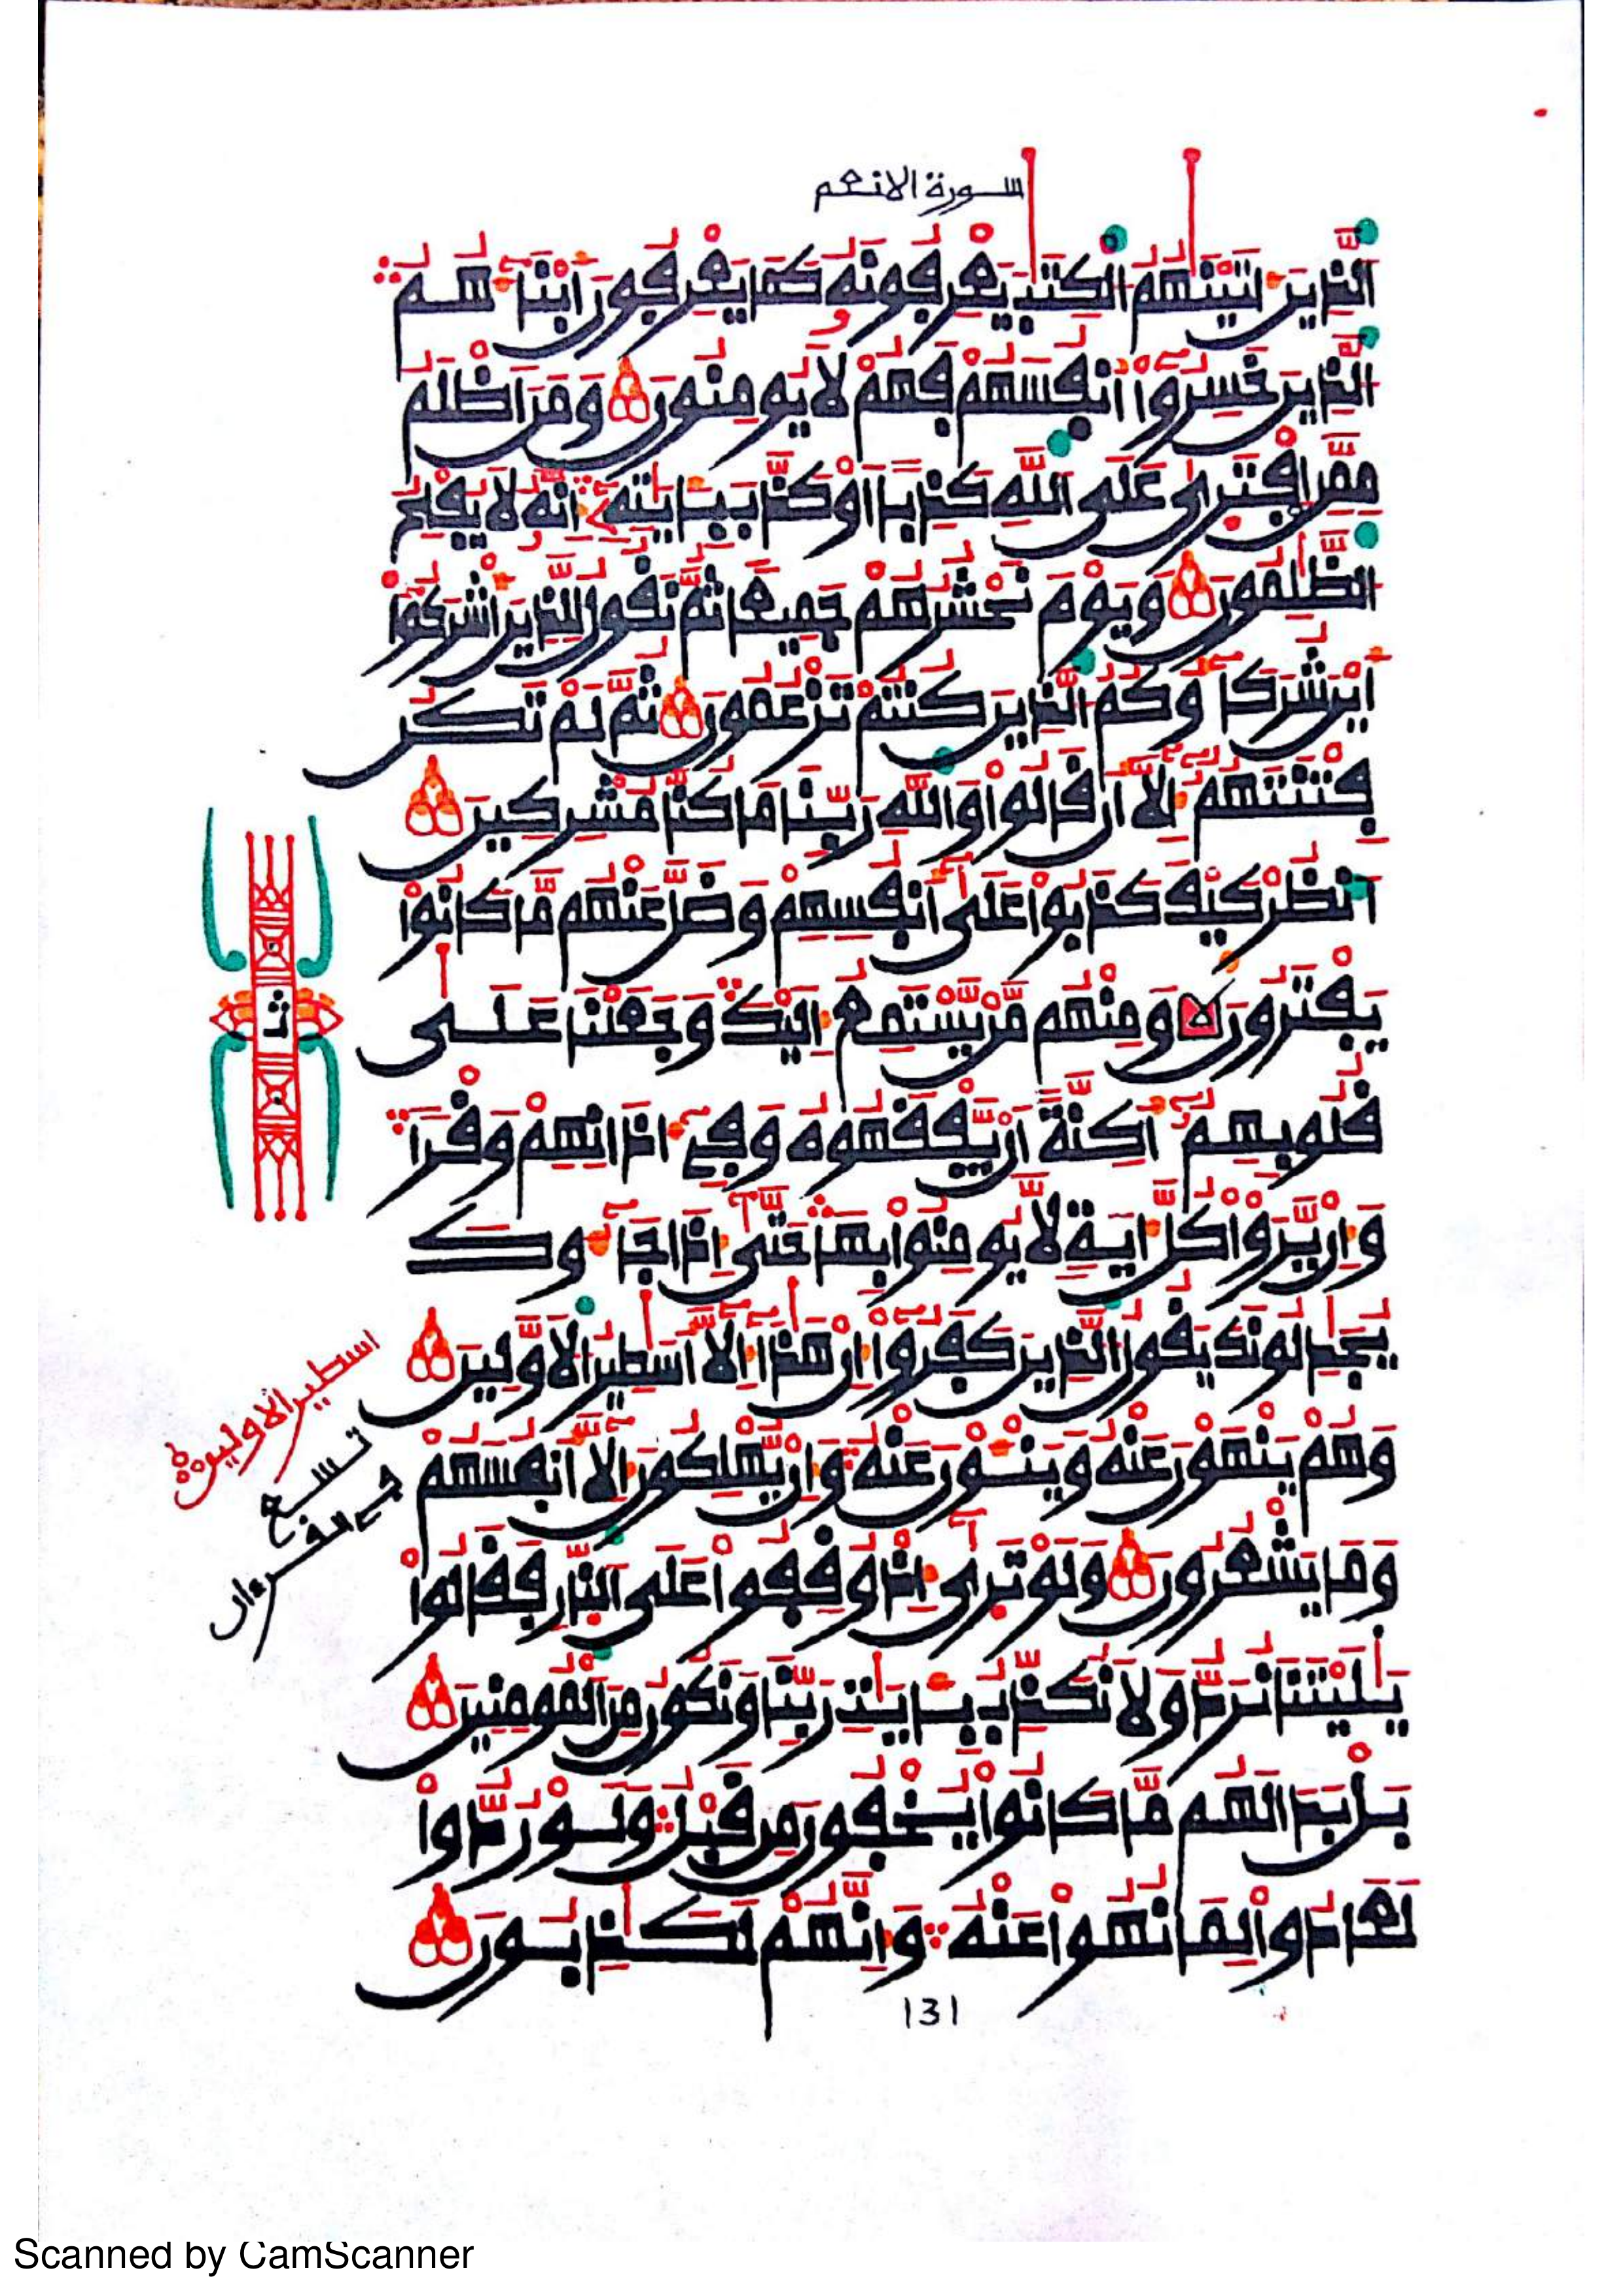 سورة الانعم
الذِينَ ءَاتَيْنَٰهُمُ الْكِتَٰبَ يَعْرِفُونَهُۥ كَمَا يَعْرِفُونَ أَبْنَآءَهُمُ
الذِينَ خَسِرُوٓاْ أَنفُسَهُمْ فَهُمْ لَا يُومِنُونَ وَمَنَ اَظْلَمُ
مِمَّنِ اِفْتَرَىٰ عَلَى اَللَّهِ كَذِباً اَوْ كَذَّبَ بِـَٔايَٰتِهِۦٓ إِنَّهُۥ لَا يُفْلِحُ
اُلظَّٰلِمُونَ وَيَوْمَ نَحْشُرُهُمْ جَمِيعاً ثُمَّ نَقُولُ لِلذِينَ أَشْرَكُوٓاْ
أَيْنَ شُرَكَآؤُكُمُ الذِينَ كُنتُمْ تَزْعُمُونَ ثُمَّ لَمْ تَكُن
فِتْنَتَهُمُۥٓ إِلَّآ أَن قَالُواْ وَاللَّهِ رَبِّنَا مَا كُنَّا مُشْرِكِينَ
اَنظُرْ كَيْفَ كَذَبُواْ عَلَىٰٓ أَنفُسِهِمْ وَضَلَّ عَنْهُم مَّا كَانُواْ
يَفْتَرُونَ وَمِنْهُم مَّنْ يَّسْتَمِعُ إِلَيْكَ وَجَعَلْنَا عَلَىٰ
قُلُوبِهِمُۥٓ أَكِنَّةً أَنْ يَّفْقَهُوهُ وَفِےٓ ءَاذَانِهِمْ وَقْراً
وَإِنْ يَّرَوْاْ كُلَّ ءَايَةٍ لَّا يُومِنُواْ بِهَا حَتَّىٰٓ إِذَا جَآءُوكَ
يُجَٰدِلُونَكَ يَقُولُ الذِينَ كَفَرُوٓاْ إِنْ هَٰذَآ إِلَّآ أَسَٰطِيرُ الَاوَّلِينَ
وَهُمْ يَنْهَوْنَ عَنْهُ وَيَنْـَٔوْنَ عَنْهُ وَإِنْ يُّهْلِكُونَ إِلَّآ أَنفُسَهُمْ
وَمَا يَشْعُرُونَ وَلَوْ تَرَىٰٓ إِذْ وُقِفُواْ عَلَى اَلنَّارِ فَقَالُواْ
يَٰلَيْتَنَا نُرَدُّ وَلَا نُكَذِّبُ بِـَٔايَٰتِ رَبِّنَا وَنَكُونُ مِنَ اَلْمُومِنِينَ
بَلْ بَدَا لَهُم مَّا كَانُواْ يُخْفُونَ مِن قَبْلُ وَلَوْ رُدُّواْ
لَعَادُواْ لِمَا نُهُواْ عَنْهُ وَإِنَّهُمْ لَكَٰذِبُونَ
ثمن
اسطير الاولين
تسع
في القرءان
131
Scanned by CamScanner